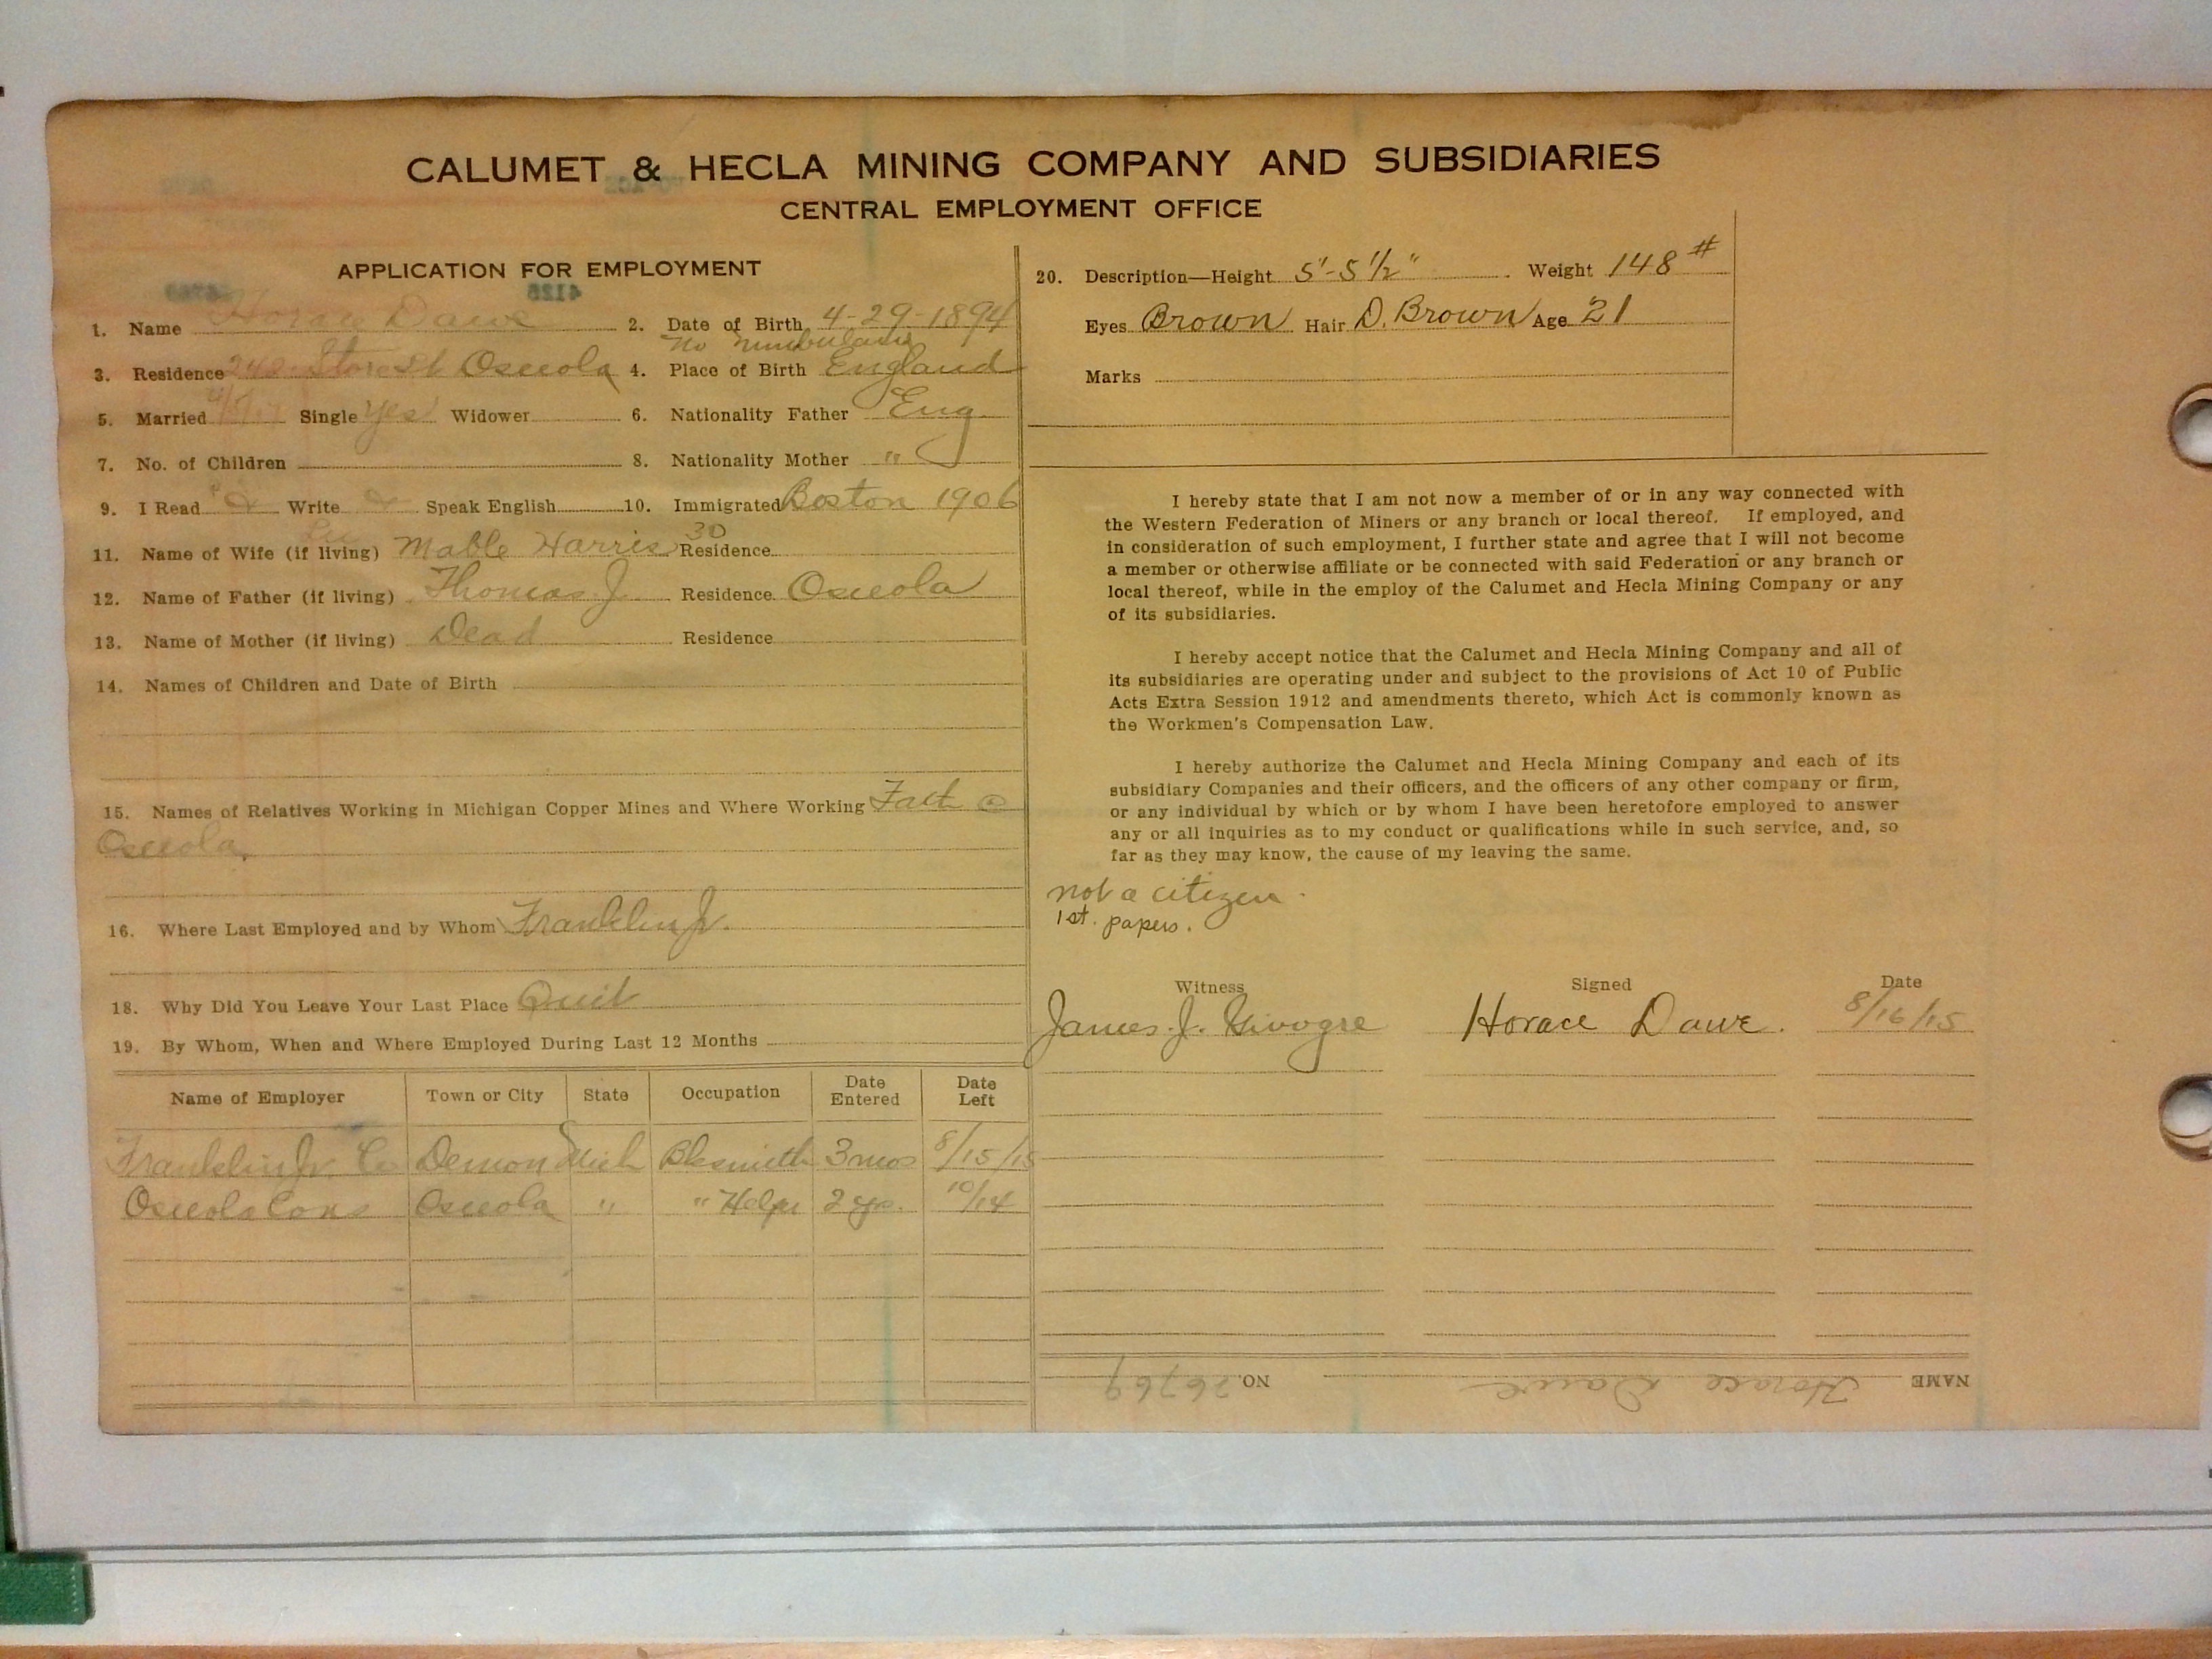 CALUMET & HECLA MINING COMPANY AND SUBSIDIARIES
CENTRAL EMPLOYMENT OFFICE
APPLICATION FOR EMPLOYMENT
1. Name Horace Dawe 2. Date of Birth 4-29-1894
No
3. Residence Osceola 4. Place of Birth England
5. Married Single Yes Widower 6. Nationality Father Eng
7. No. of Children 8. Nationality Mother "
9. I Read Write Speak English 10. Immigrated Boston 1906
30
11. Name of Wife (if living) Mable Harris Residence
12. Name of Father (if living) Thomas J. Residence Osceola
13. Name of Mother (if living) Dead Residence
14. Names of Children and Date of Birth
15. Names of Relatives Working in Michigan Copper Mines and Where Working Fath @
Osceola.
16. Where Last Employed and by Whom Franklin Jr.
18. Why Did You Leave Your Last Place Quit
19. By Whom, When and Where Employed During Last 12 Months
Name of Employer Town or City State Occupation Date Entered Date Left
Franklin Jr. Co Demon Mich Blksmith 3 mos 8/15/15
Osceola Cons Osceola " " Helper 2 yrs. 10/14
20. Description—Height 5'-5 1/2" Weight 148 #
Eyes Brown Hair D. Brown Age 21
Marks
I hereby state that I am not now a member of or in any way connected with
the Western Federation of Miners or any branch or local thereof. If employed, and
in consideration of such employment, I further state and agree that I will not become
a member or otherwise affiliate or be connected with said Federation or any branch or
local thereof, while in the employ of the Calumet and Hecla Mining Company or any
of its subsidiaries.
I hereby accept notice that the Calumet and Hecla Mining Company and all of
its subsidiaries are operating under and subject to the provisions of Act 10 of Public
Acts Extra Session 1912 and amendments thereto, which Act is commonly known as
the Workmen's Compensation Law.
I hereby authorize the Calumet and Hecla Mining Company and each of its
subsidiary Companies and their officers, and the officers of any other company or firm,
or any individual by which or by whom I have been heretofore employed to answer
any or all inquiries as to my conduct or qualifications while in such service, and, so
far as they may know, the cause of my leaving the same.
not a citizen.
1st. papers.
Witness Signed Date
James J. Horace Dawe. 8/16/15
NAME Horace Dawe NO. 26769